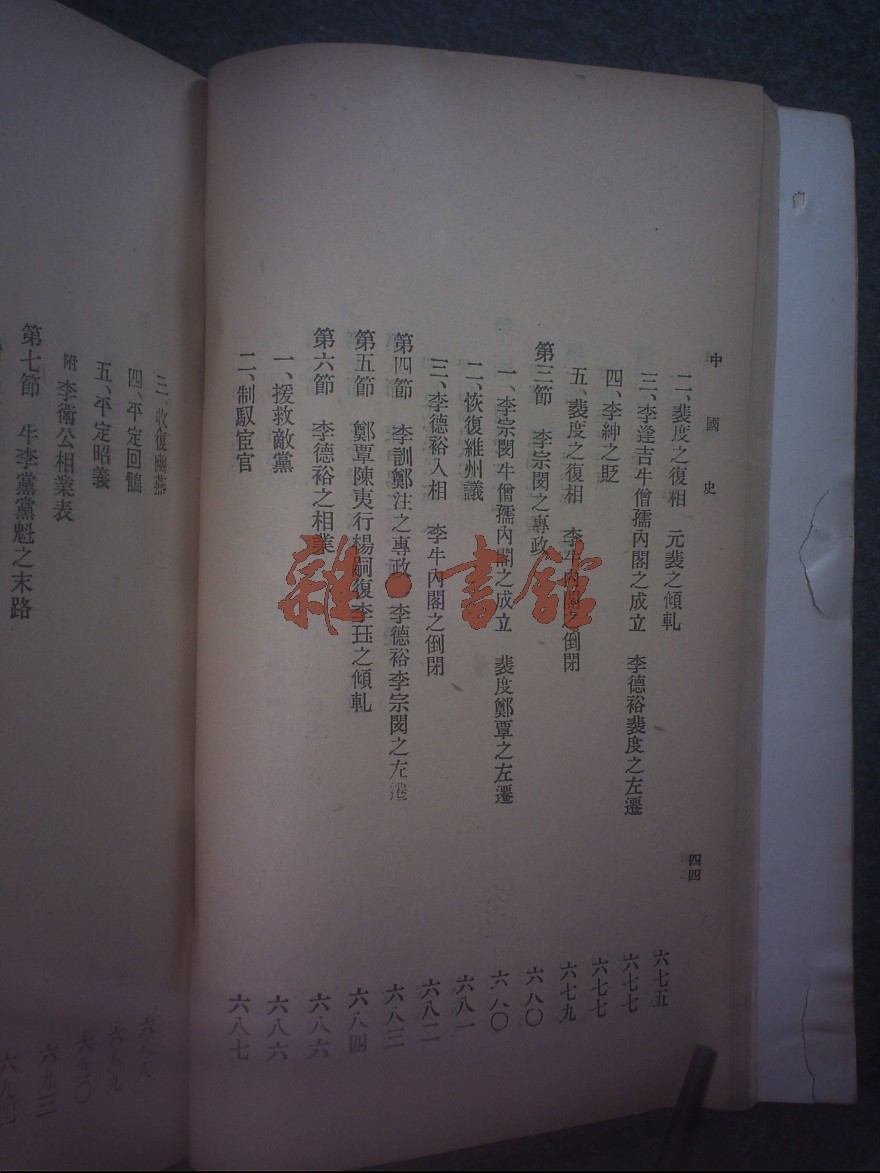 中國史
四四
二、裴度之復相　元裴之傾軋　六七五
三、李逢吉牛僧孺內閣之成立　李德裕裴度之左遷　六七七
四、李紳之貶　六七七
五、裴度之復相　李牛內閣之倒閉　六七九
第三節　李宗閔之專政　六八〇
一、李宗閔牛僧孺內閣之成立　裴度鄭覃之左遷　六八〇
二、恢復維州議　六八一
三、李德裕入相　李牛內閣之倒閉　六八二
第四節　李訓鄭注之專政　李德裕李宗閔之左遷　六八三
第五節　鄭覃陳夷行楊嗣復李珏之傾軋　六八四
第六節　李德裕之相業　六八六
一、援救敵黨　六八六
二、制馭宦官　六八七
三、收復幽燕　六八八
四、平定回鶻　六八九
五、平定昭義　六九〇
附　李衛公相業表　六九三
第七節　牛李黨黨魁之末路
雜·書館